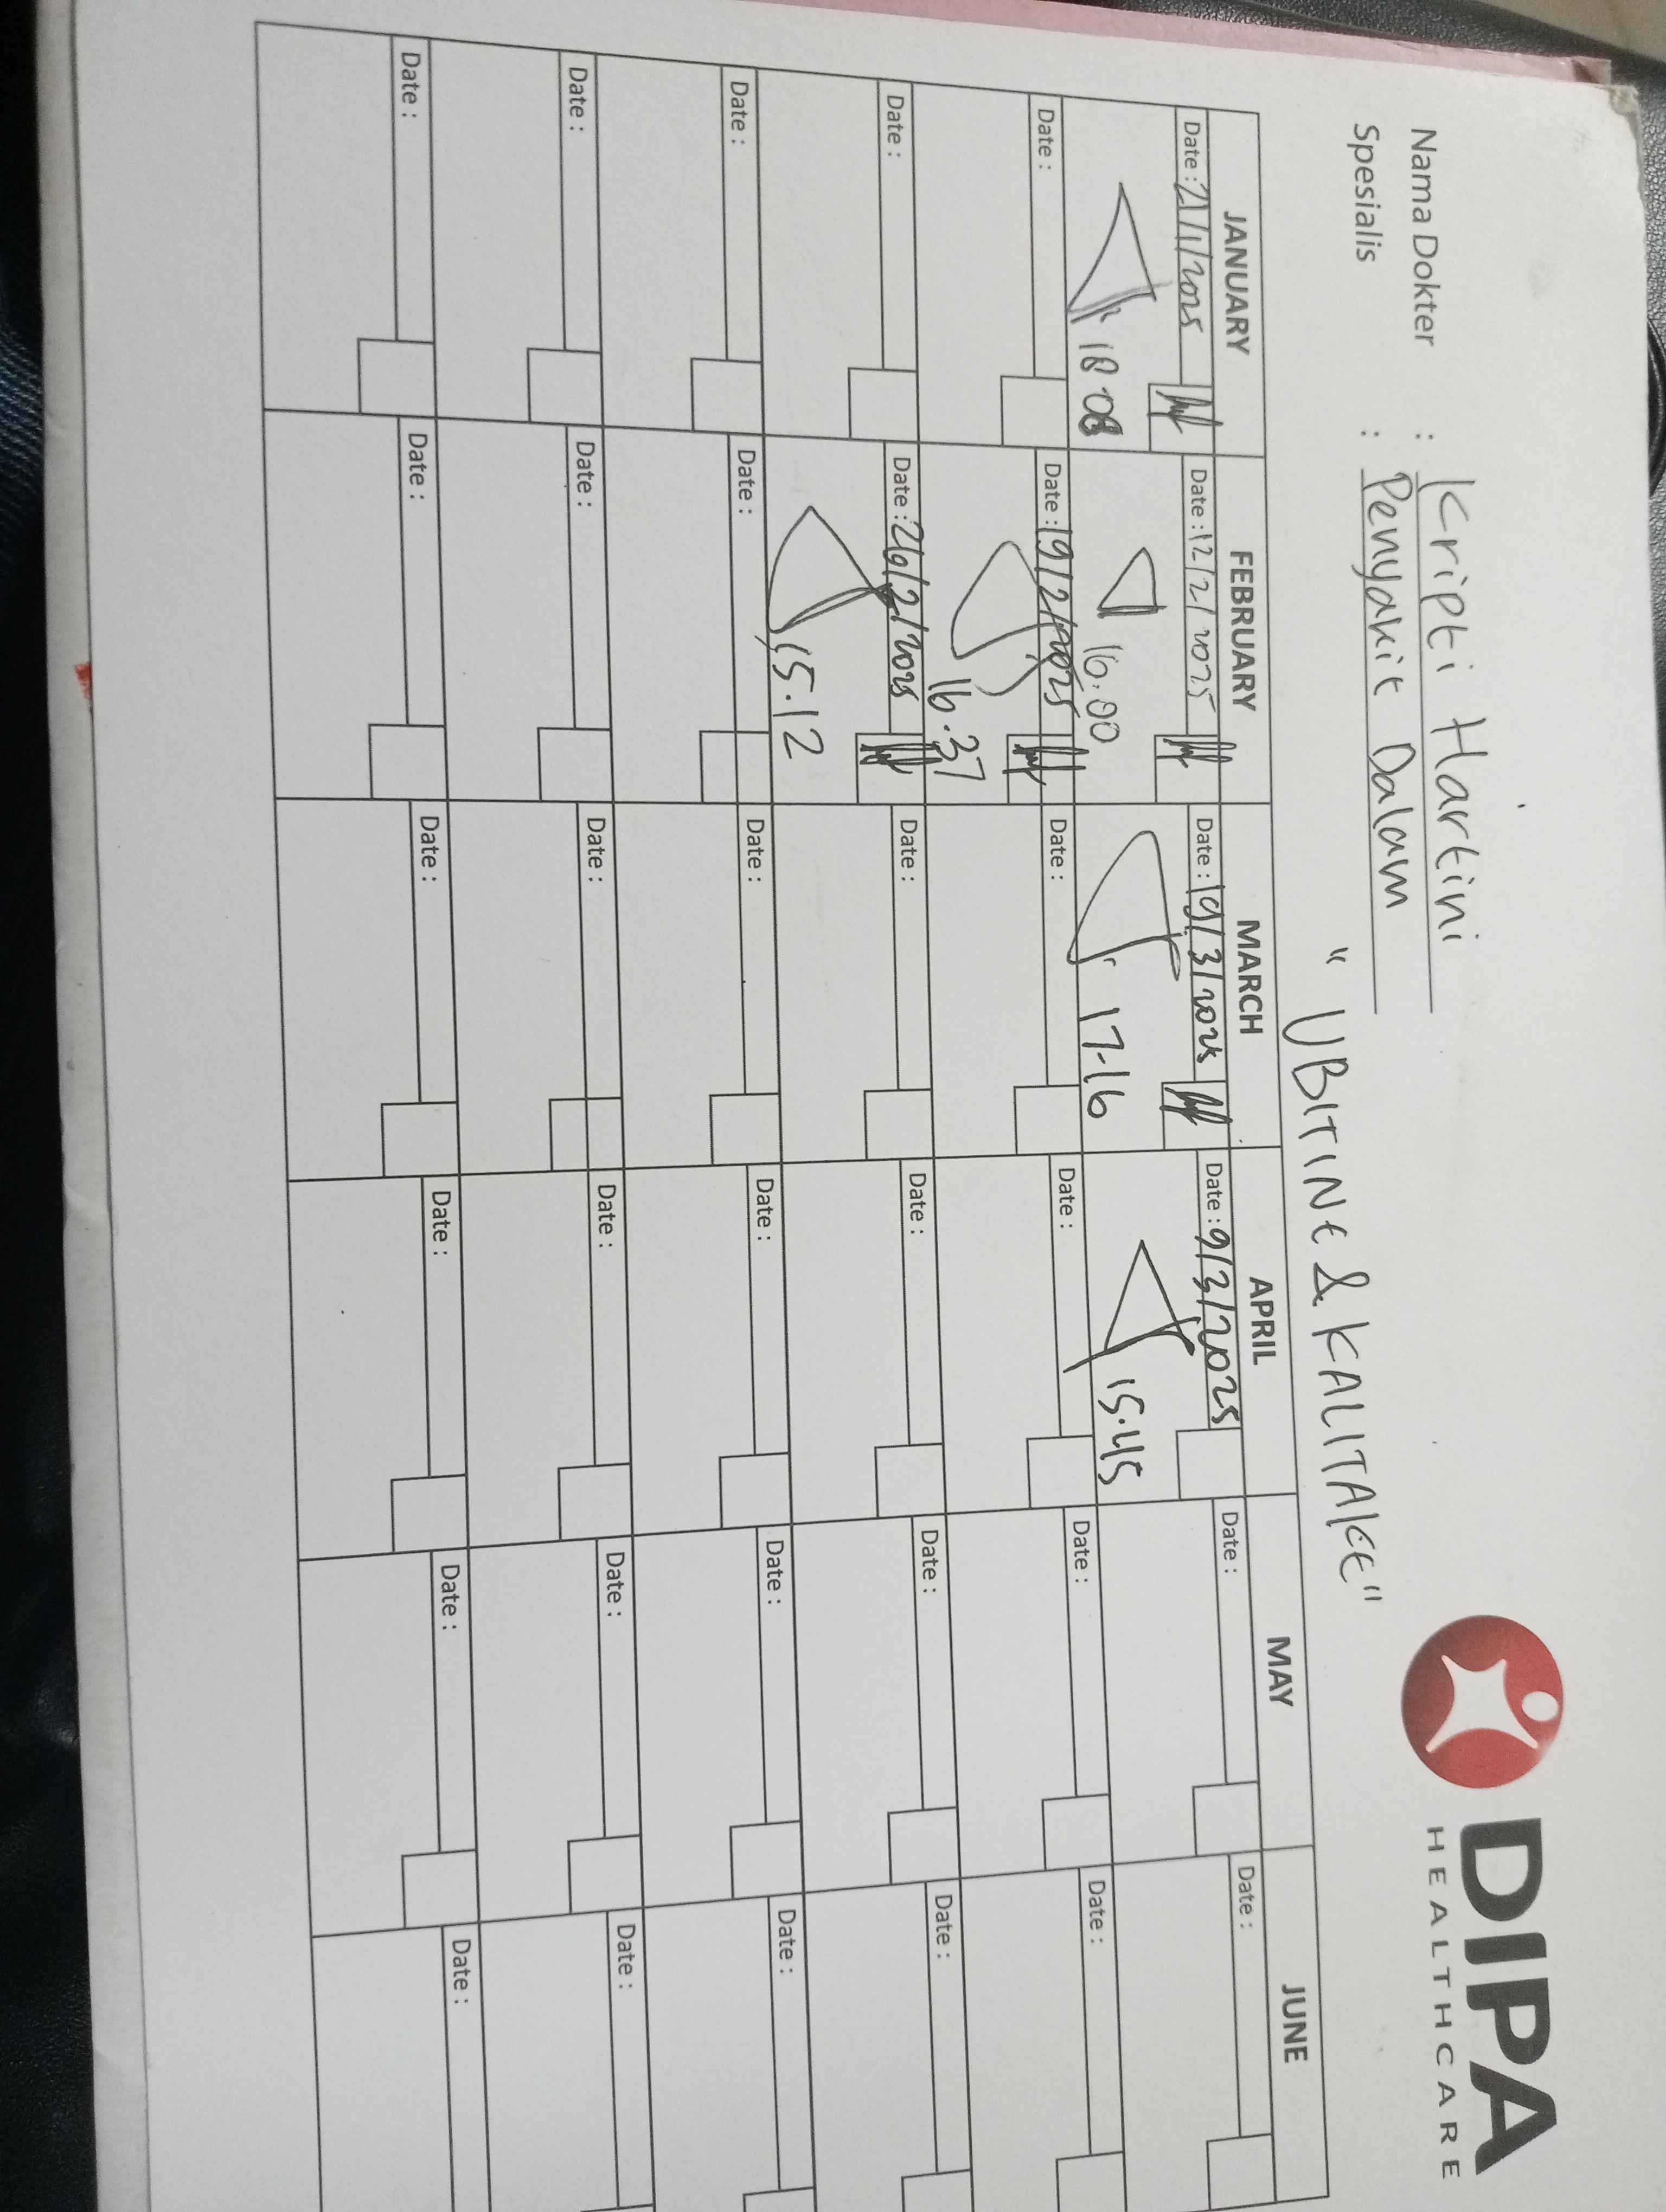 Nama Dokter : Kripti Hartini
Spesialis : Penyakit Dalam
DIPA
HEALTHCARE
" UBITINE & KALITAKE"
JANUARY FEBRUARY MARCH APRIL MAY JUNE
Date : 21/1/2025 Date : 12/2/2025 Date : 19/3/2025 Date : 9/3/2025 Date : Date :
18.08 16.00 17-16 15.45
Date : Date : 19/2/2025 Date : Date : Date : Date :
16.37
Date : Date : 26/2/2025 Date : Date : Date : Date :
15.12
Date : Date : Date : Date : Date : Date :
Date : Date : Date : Date : Date : Date :
Date : Date : Date : Date : Date : Date :